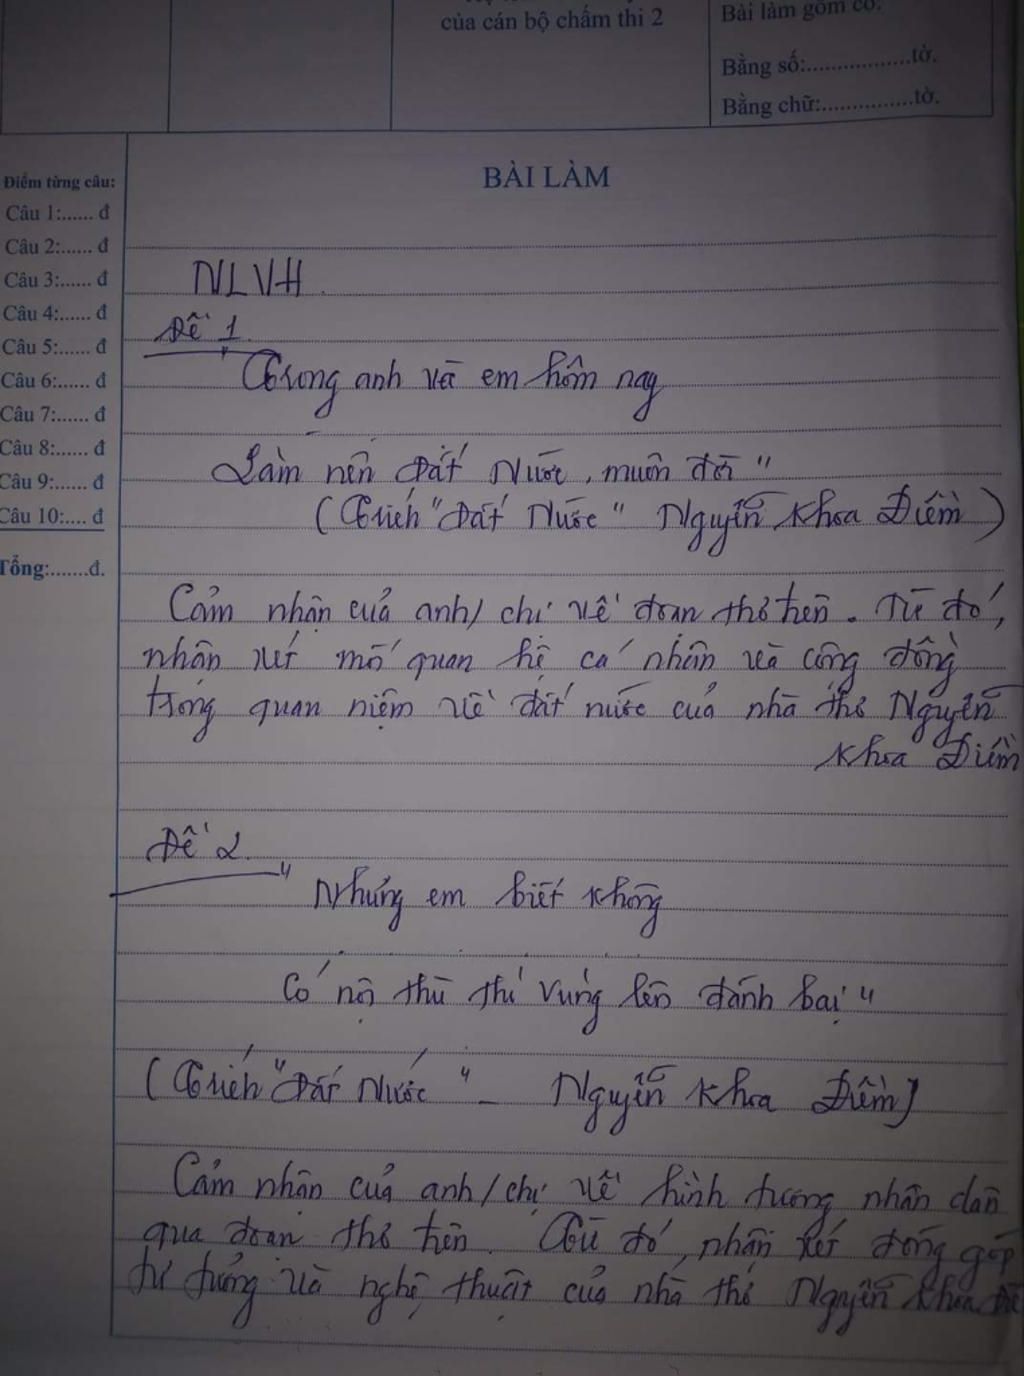 của cán bộ chấm thi 2
Bài làm gồm có:
Bằng số:..................tờ.
Bằng chữ:...............tờ.
BÀI LÀM
Điểm từng câu:
Câu 1:...... đ
Câu 2:...... đ
Câu 3:...... đ
Câu 4:...... đ
Câu 5:...... đ
Câu 6:...... đ
Câu 7:...... đ
Câu 8:...... đ
Câu 9:...... đ
Câu 10:.... đ
Tổng:.......đ.
NLVH
Đề 1
"Trong anh và em hôm nay
Làm nên Đất Nước muôn đời"
(Trích "Đất Nước" Nguyễn Khoa Điềm)
Cảm nhận của anh/chị về đoạn thơ trên. Từ đó,
nhận xét mối quan hệ cá nhân và cộng đồng
trong quan niệm về đất nước của nhà thơ Nguyễn
Khoa Điềm
Đề 2
"Nhưng em biết không
Có nội thù thì vùng lên đánh bại"
(Trích "Đất Nước" - Nguyễn Khoa Điềm)
Cảm nhận của anh/chị về hình tượng nhân dân
qua đoạn thơ trên. Từ đó, nhận xét đóng góp
tư tưởng và nghệ thuật của nhà thơ Nguyễn Khoa